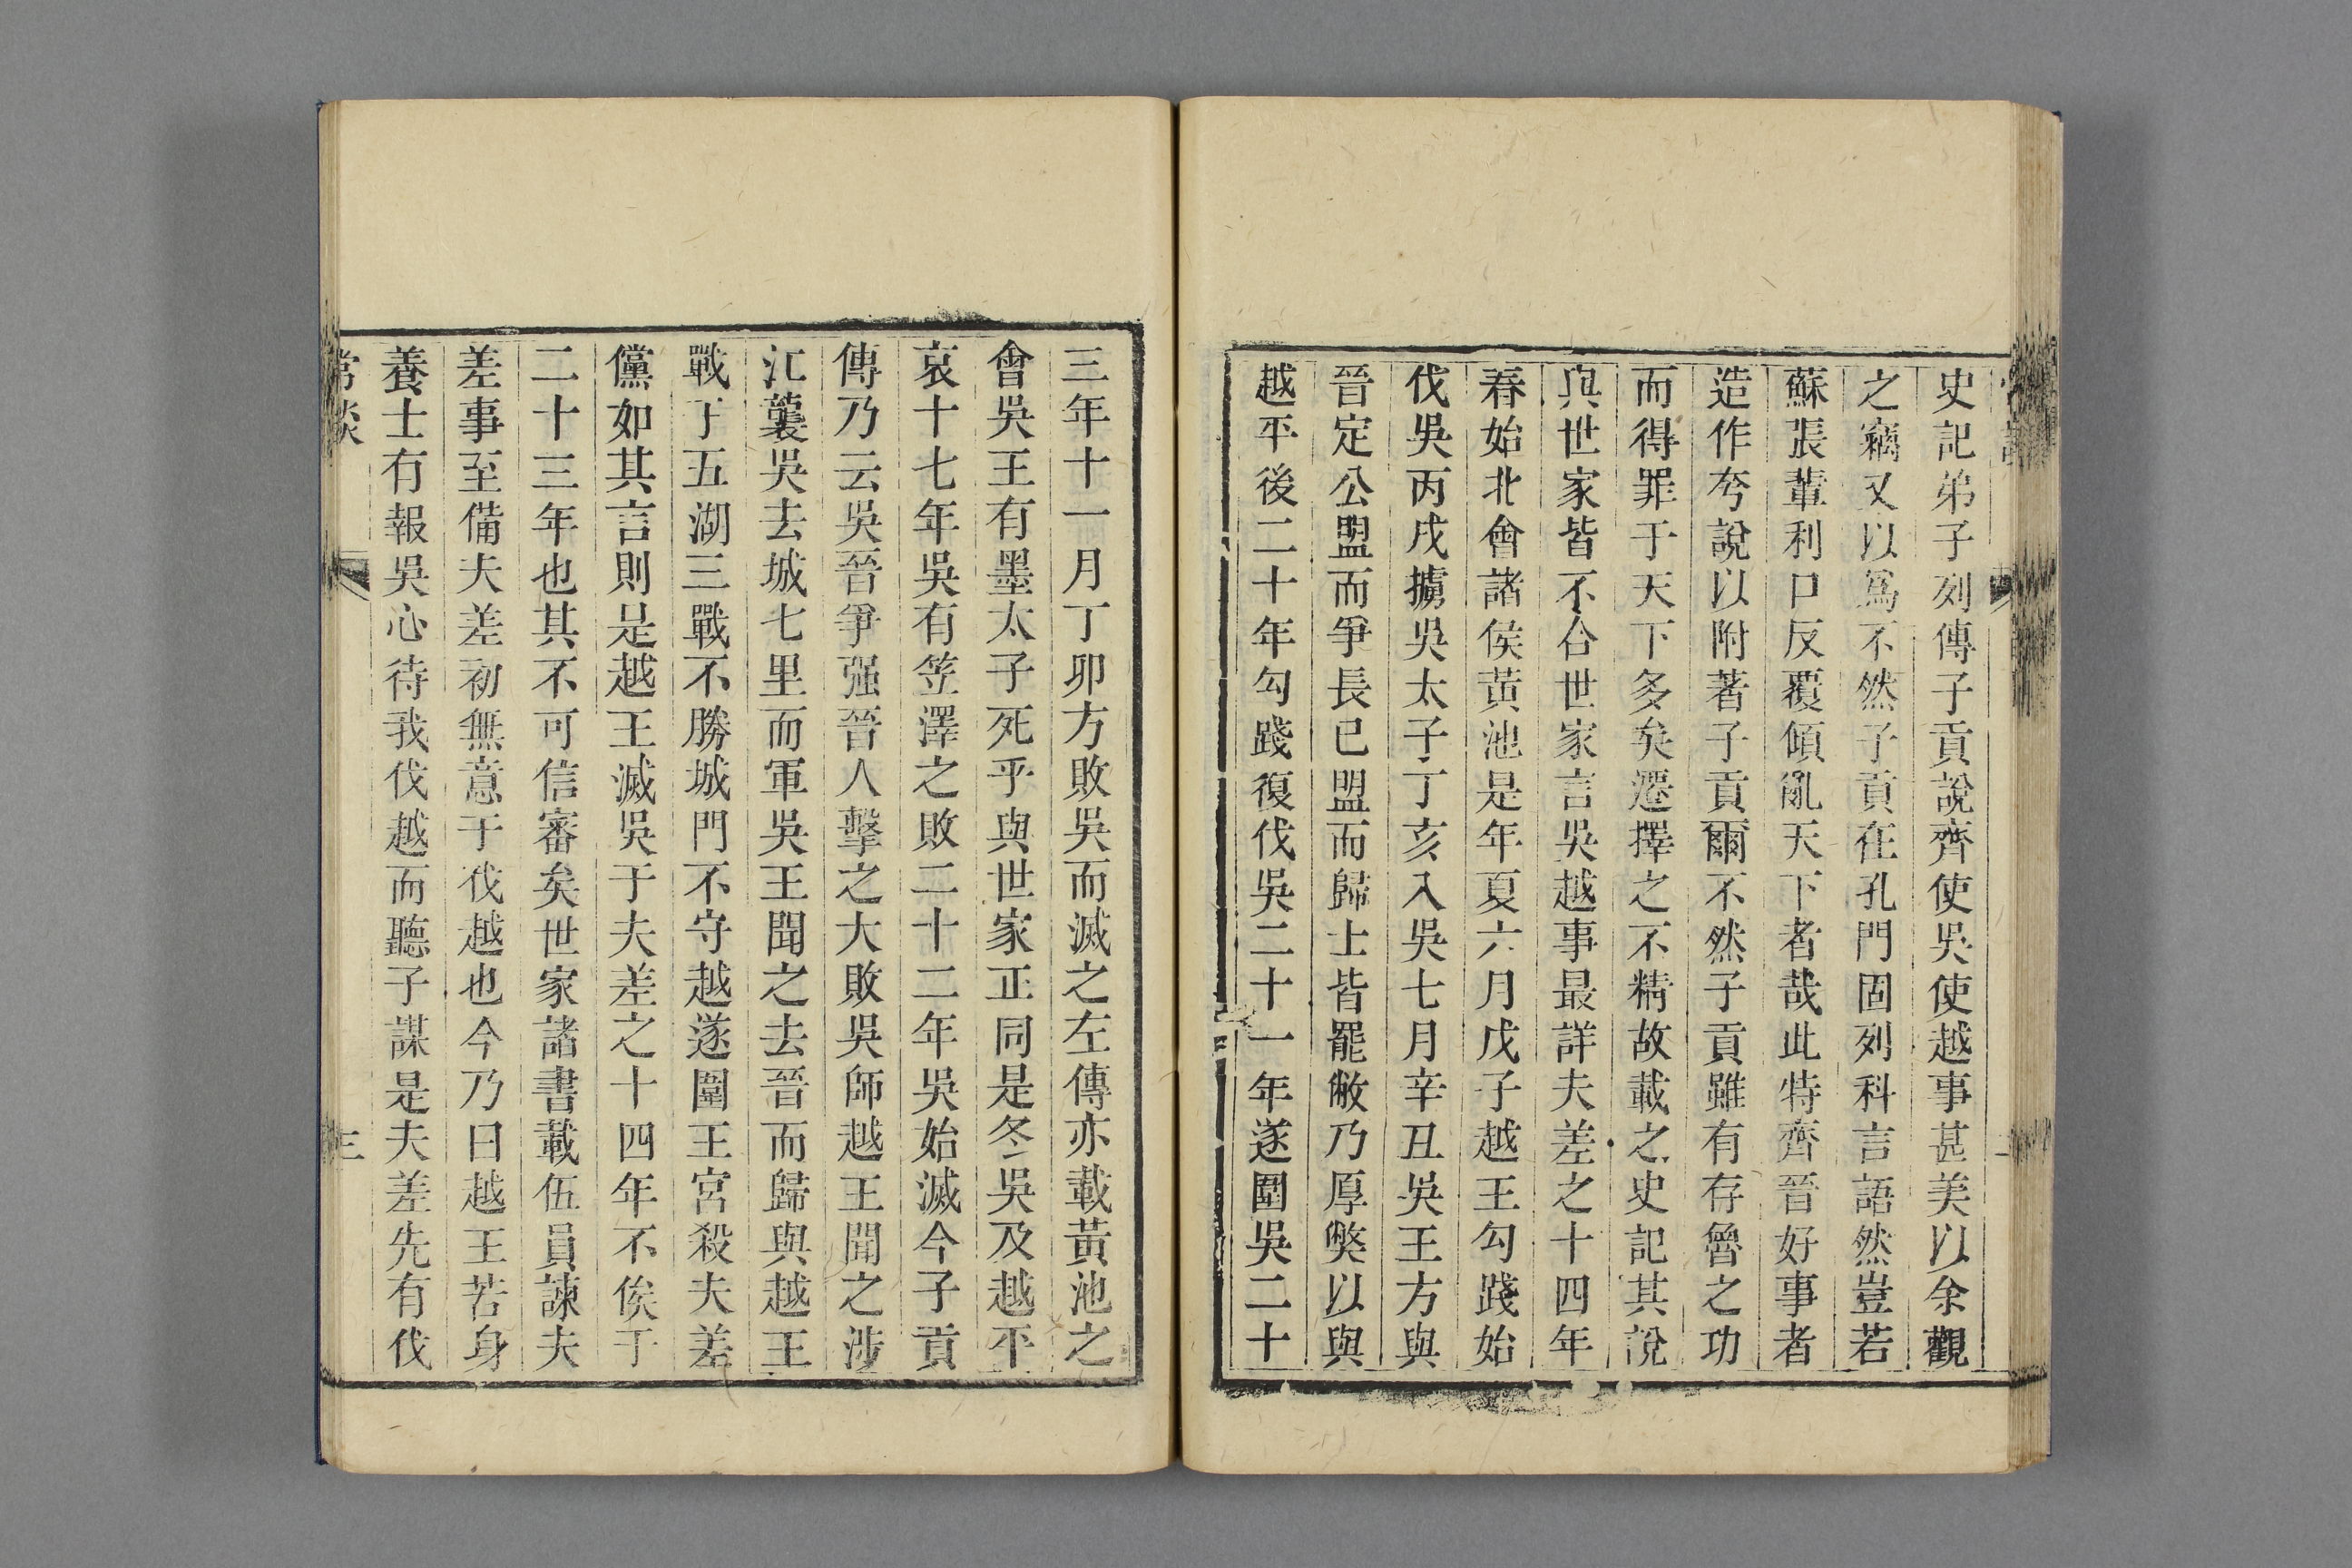 史記弟子列傳子貢說齊使吳使越事甚美以余觀
之竊又以爲不然子貢在孔門固列科言語然豈若
蘇張輩利口反覆傾亂天下者哉此特齊晉好事者
造作夸說以附著子貢爾不然子貢雖有存魯之功
而得罪于天下多矣遷擇之不精故載之史記其說
與世家皆不合世家言吳越事最詳夫差之十四年
春始北會諸侯黃池是年夏六月戊子越王勾踐始
伐吳丙戌擄吳太子丁亥入吳七月辛丑吳王方與
晉定公盟而爭長已盟而歸士皆罷敝乃厚獘以與
越平後二十年勾踐復伐吳二十一年遂圍吳二十
三年十一月丁卯方敗吳而滅之左傳亦載黃池之
會吳王有墨太子死乎與世家正同是冬吳及越平
哀十七年吳有笠澤之敗二十二年吳始滅今子貢
傳乃云吳晉爭强晉人擊之大敗吳師越王聞之涉
江襲吳去城七里而軍吳王聞之去晉而歸與越王
戰于五湖三戰不勝城門不守越遂圍王宮殺夫差
儻如其言則是越王滅吳于夫差之十四年不俟于
二十三年也其不可信審矣世家諸書載伍員諫夫
差事至備夫差初無意于伐越也今乃曰越王若身
養士有報吳心待我伐越而聽子謀是夫差先有伐
常談
三